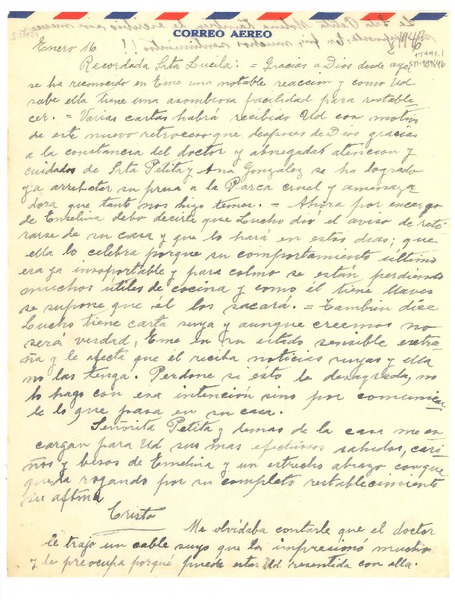 CORREO AEREO
Enero 16
1946
Recordada Srta Lucila: = Gracias a Dios desde ayer
se ha reconocido en Eme una notable reacción y como Ud
sabe ella tiene una asombrosa facilidad para restable
cer. = Varias cartas habrá recibido Ud con motivo
de este nuevo retroceso que despues de Dios gracias
a la constancia del doctor y abnegadas atencion y
cuidados de Srta Petita y Ana Gonzalez se ha logrado
ya arrebatar su presa a la Parca cruel y amenaza
dora que tanto nos hizo temer. = Ahora por encargo
de Emelina debo decirle que Lucho dió el aviso de reti
rarse de su casa y que lo hará en estos dias; que
ella lo celebra porque su comportamiento último
era ya insoportable y para colmo se están perdiendo
muchos útiles de cocina y como él tiene llaves
se supone que él los sacará. = Tambien dice
Lucho tiene carta suya y aunque creemos no
será verdad, Eme en su estado sensible extra
ña y le afecta que el reciba noticias suyas y ella
no las tenga. Perdone si esto la desagrada, no
lo hago con esa intención sino por comunicar
le lo que pasa en su casa.
Señorita Petita y demas de la casa me en
cargan para Ud sus mas efectivos saludos, cari
ños y besos de Emelina y un estrecho abrazo con que
queda rogando por su completo restablecimiento
su aftma
Cristo
Me olvidaba contarle que el doctor
le trajo un cable suyo que la impresionó mucho
y la preocupa porqué puede estar Ud resentida con ella.